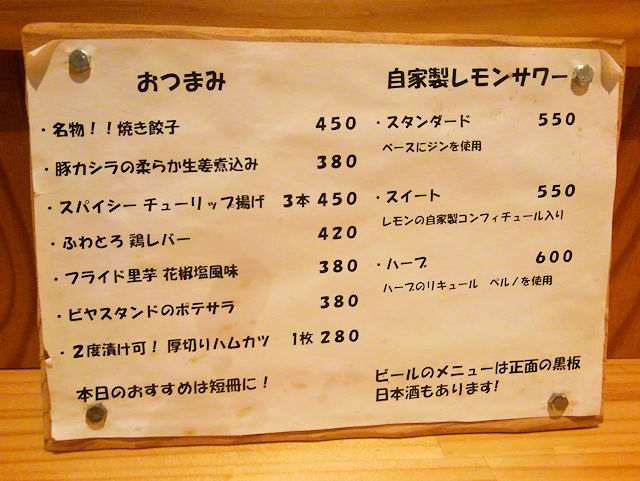 おつまみ
・名物！！焼き餃子 450
・豚カシラの柔らか生姜煮込み 380
・スパイシー チューリップ揚げ 3本 450
・ふわとろ 鶏レバー 420
・フライド里芋 花椒塩風味 380
・ビヤスタンドのポテサラ 380
・2度漬け可！ 厚切りハムカツ 1枚 280
本日のおすすめは短冊に！
自家製レモンサワー
・スタンダード 550
ベースにジンを使用
・スイート 550
レモンの自家製コンフィチュール入り
・ハーブ 600
ハーブのリキュール ペルノを使用
ビールのメニューは正面の黒板
日本酒もあります!